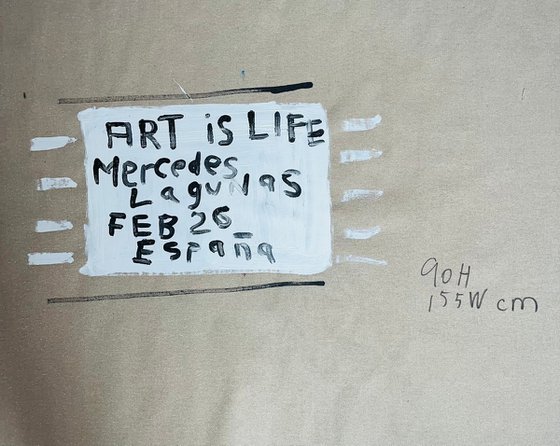 ART iS LIFE
Mercedes
LaguNaS
FEB 26
España
90H
155W cm